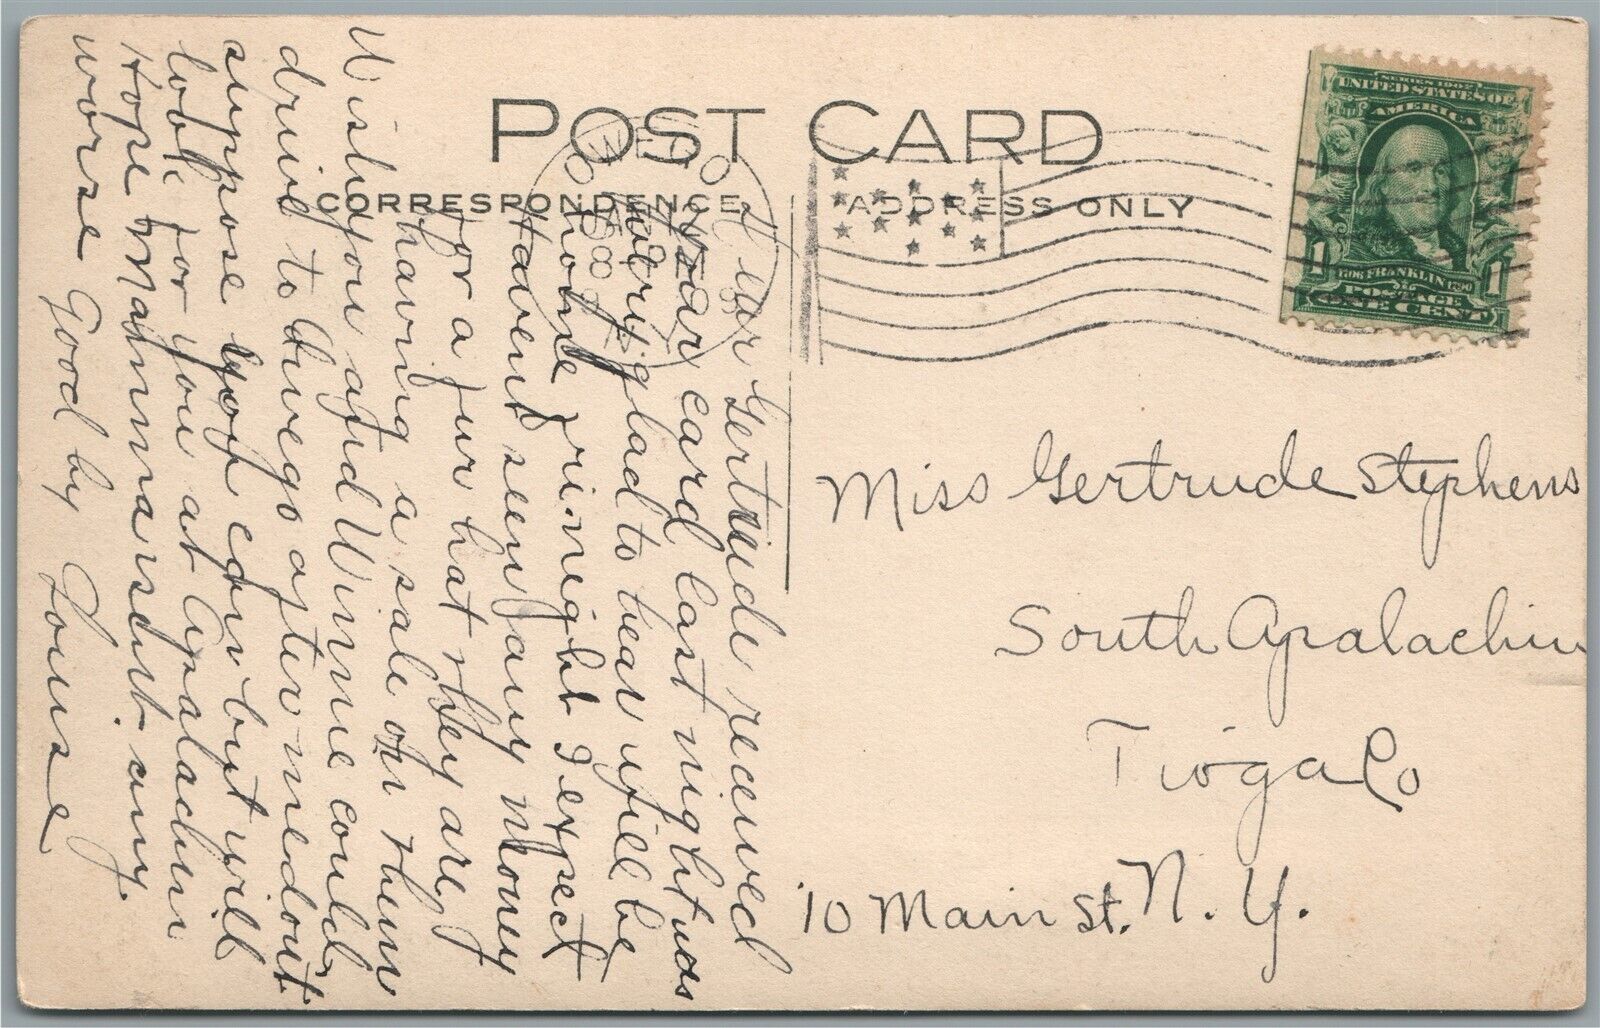 POST CARD
CORRESPONDENCE
ADDRESS ONLY
OWEGO
SERIES 1902
UNITED STATES OF
AMERICA
1 1
FRANKLIN
POSTAGE
ONE CENT
Dear Gertrude received
your card last night was
glad to hear will be
home friright I expect
Havent seen any money
for a fur hat they are
having a sale on them
Wish you and Winnie could
drive to Owego afternedont
suppose you can but will
look for you at Apalachin
Hope Mamma isent any
worse Good by Louise
Miss Gertrude Stephens
South Apalachin
Tioga Co
N. Y.
10 Main St.